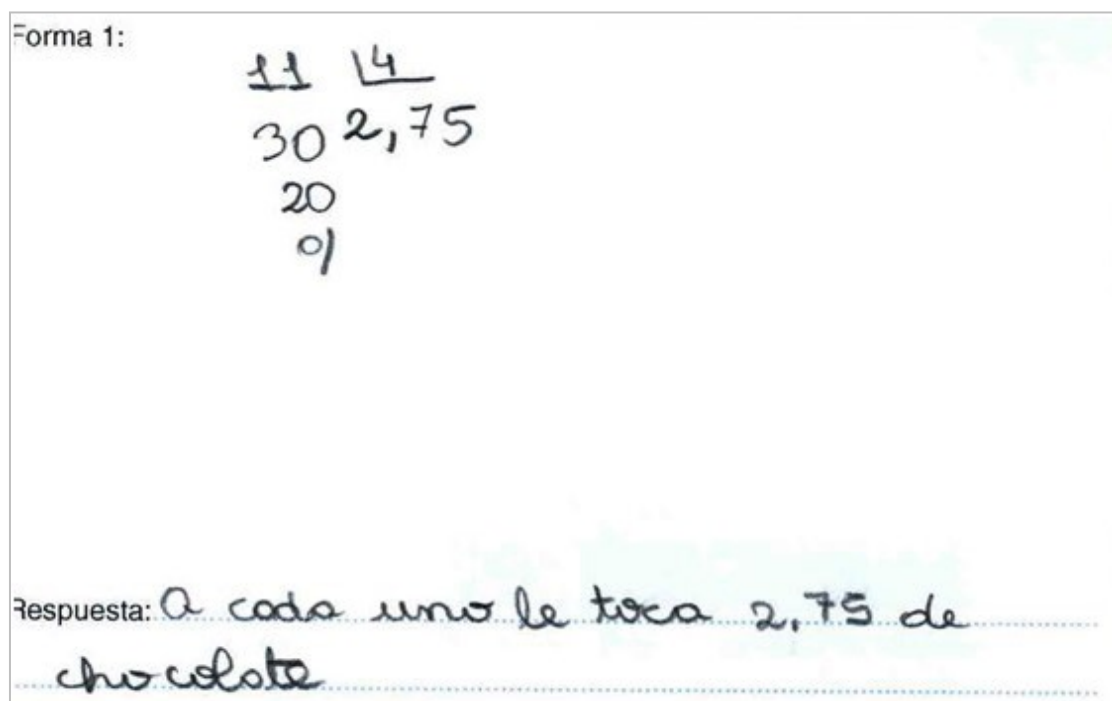 Forma 1:
11 4
30 2,75
20
0
Respuesta: A cada uno le toca 2,75 de
chocolate